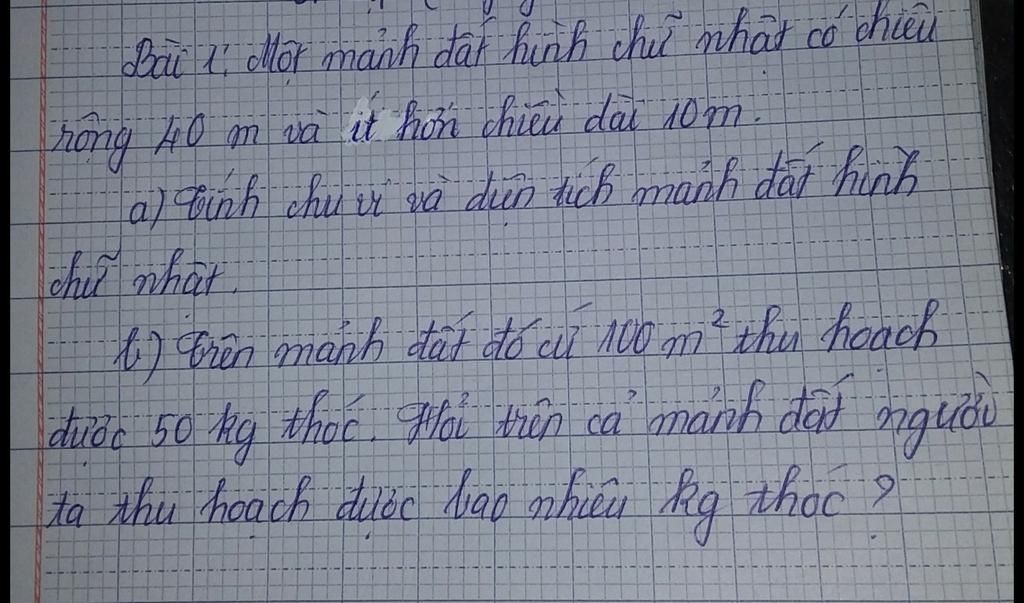 Bài 1: Một mảnh đất hình chữ nhật có chiều
rộng 40 m và ít hơn chiều dài 10m.
a) Tính chu vi và diện tích mảnh đất hình
chữ nhật.
b) Trên mảnh đất đó cứ 100 m² thu hoạch
được 50 kg thóc. Hỏi trên cả mảnh đất người
ta thu hoạch được bao nhiêu kg thóc?